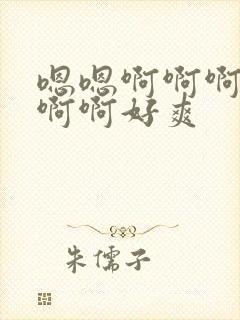 嗯嗯啊啊啊
啊啊好爽
朱儒子